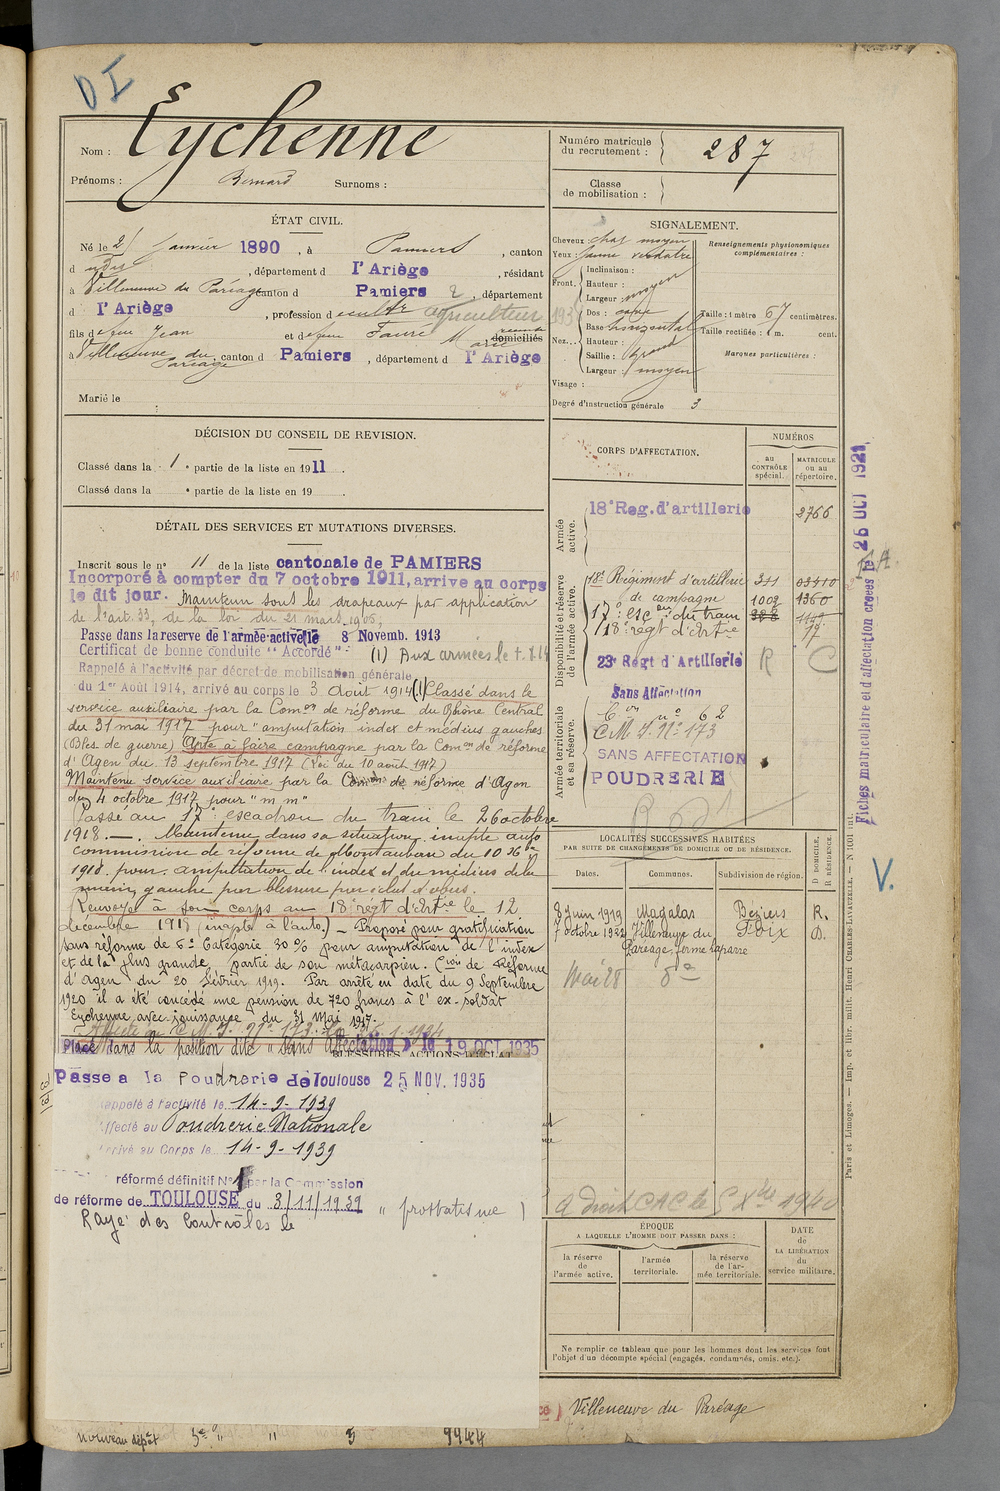 DI
Nom : Eychenne
Prénoms : Bernard Surnoms :
Numéro matricule du recrutement : 287
Classe de mobilisation :
ÉTAT CIVIL.
Né le 2 janvier 1890, à Pamiers, canton
d udit, département d l'Ariège, résidant
à Villeneuve du Paréage canton d Pamiers, département
d l'Ariège, profession de cultr agriculteur
fils de feu Jean et de feue Fauré Marie domiciliés
à Villeneuve du Paréage, canton d Pamiers, département d l'Ariège
Marié le
SIGNALEMENT.
Cheveux chat moyen
Yeux : jaune verdatre
Front. Inclinaison :
Hauteur : moyen
Largeur
Nez... Dos : cave
Base horizontal
Hauteur :
Saillie : Grand
Largeur : moyen
Visage :
Degré d'instruction générale 3
Renseignements physionomiques complémentaires :
Taille : 1 mètre 67 centimètres.
Taille rectifiée : 1 m. cent.
Marques particulières :
DÉCISION DU CONSEIL DE REVISION.
Classé dans la 1e partie de la liste en 1911.
Classé dans la e partie de la liste en 19
DÉTAIL DES SERVICES ET MUTATIONS DIVERSES.
Inscrit sous le n° 11 de la liste cantonale de PAMIERS
Incorporé à compter du 7 octobre 1911, arrive au corps
le dit jour. Maintenu sous les drapeaux par application
de l'art. 33, de la loi du 21 mars 1905,
Passe dans la reserve de l'armée active le 8 Novemb. 1913
Certificat de bonne conduite "Accordé" (1) Aux armées le
Rappelé à l'activité par décret de mobilisation générale
du 1er Août 1914, arrivé au corps le 3 août 1914 (1) Classé dans le
service auxiliaire par la Comon de réforme du Rhône Central
du 31 mai 1917 pour "amputation index et médius gauches
(Bles. de guerre) Apte à faire campagne par la Comon de réforme
d'Agen du 13 septembre 1917 (Loi du 10 août 1917)
Maintenu service auxiliaire par la Comon de réforme d'Agen
du 4 octobre 1917 pour "m m"
Passé au 17e escadron du train le 26 octobre
1918. —. Maintenu dans sa situation, inapte auto
commission de réforme de Montauban du 10 Xbre
1918. pour. amputation de l'index et du médius de la
main gauche par blessure par éclat d'obus.
Renvoyé à son corps au 18e régt d'Artie le 12
décembre 1918 (inapte à l'auto.) — Proposé pour gratification
sans réforme de 6e Catégorie 30 % pour amputation de l'index
et de la plus grande partie de son métacarpien. Cion de Réforme
d'Agen du 20 février 1919. Par arrêté en date du 9 Septembre
1920 il a été concédé une pension de 720 francs à l'ex-soldat
Eychenne avec jouissance du 31 Mai 1917.
Affecté au C.M.I. n° 173. Le 1.1924
Placé dans la position dite "Sans Affectation" le 19 OCT 1935
BLESSURES, ACTIONS D'ÉCLAT
Passe a la Poudrerie de Toulouse 25 NOV. 1935
Rappelé à l'activité le 14-9-1939
Affecté au Poudrerie Nationale
Arrivé au Corps le 14-9-1939
réformé définitif N°1 par la Commission
de réforme de TOULOUSE du 3/11/1939 "prostatisme"
Rayé des Contrôles le
CORPS D'AFFECTATION.
NUMÉROS
au CONTRÔLE spécial.
MATRICULE ou au répertoire.
Armée active.
18e Reg. d'artillerie 2766
Disponibilité et réserve de l'armée active.
18e Régiment d'artillerie 311 03410
de campagne 1002 1360
17e esc on du train
18e régt d'Artie
23e Régt d'Artillerie R C
Armée territoriale et sa réserve.
Sans Affectation
n° 62
C.M.I. N° 173
SANS AFFECTATION
POUDRERIE
LOCALITÉS SUCCESSIVES HABITÉES
PAR SUITE DE CHANGEMENTS DE DOMICILE OU DE RÉSIDENCE.
Dates. Communes. Subdivision de région. D DOMICILE. R RÉSIDENCE.
8 Juin 1919 Magalas Béziers R.
7 octobre 1922 Villeneuve du Paréage, ferme Laparre Foix D.
Mai 28 do
A droit CAC le 5 Xbre 1940
ÉPOQUE
A LAQUELLE L'HOMME DOIT PASSER DANS :
la réserve de l'armée active.
l'armée territoriale.
la réserve de l'armée territoriale.
DATE de LA LIBÉRATION du service militaire.
Ne remplir ce tableau que pour les hommes dont les services font
l'objet d'un décompte spécial (engagés, condamnés, omis, etc.).
Villeneuve du Paréage
nouveau dépôt 3e " " 3 9944
Fiches matriculaire et d'affectation créées le 26 OCT 1921
V.
Paris et Limoges. — Imp. et libr. milit. Henri CHARLES-LAVAUZELLE. — N 1001 int.